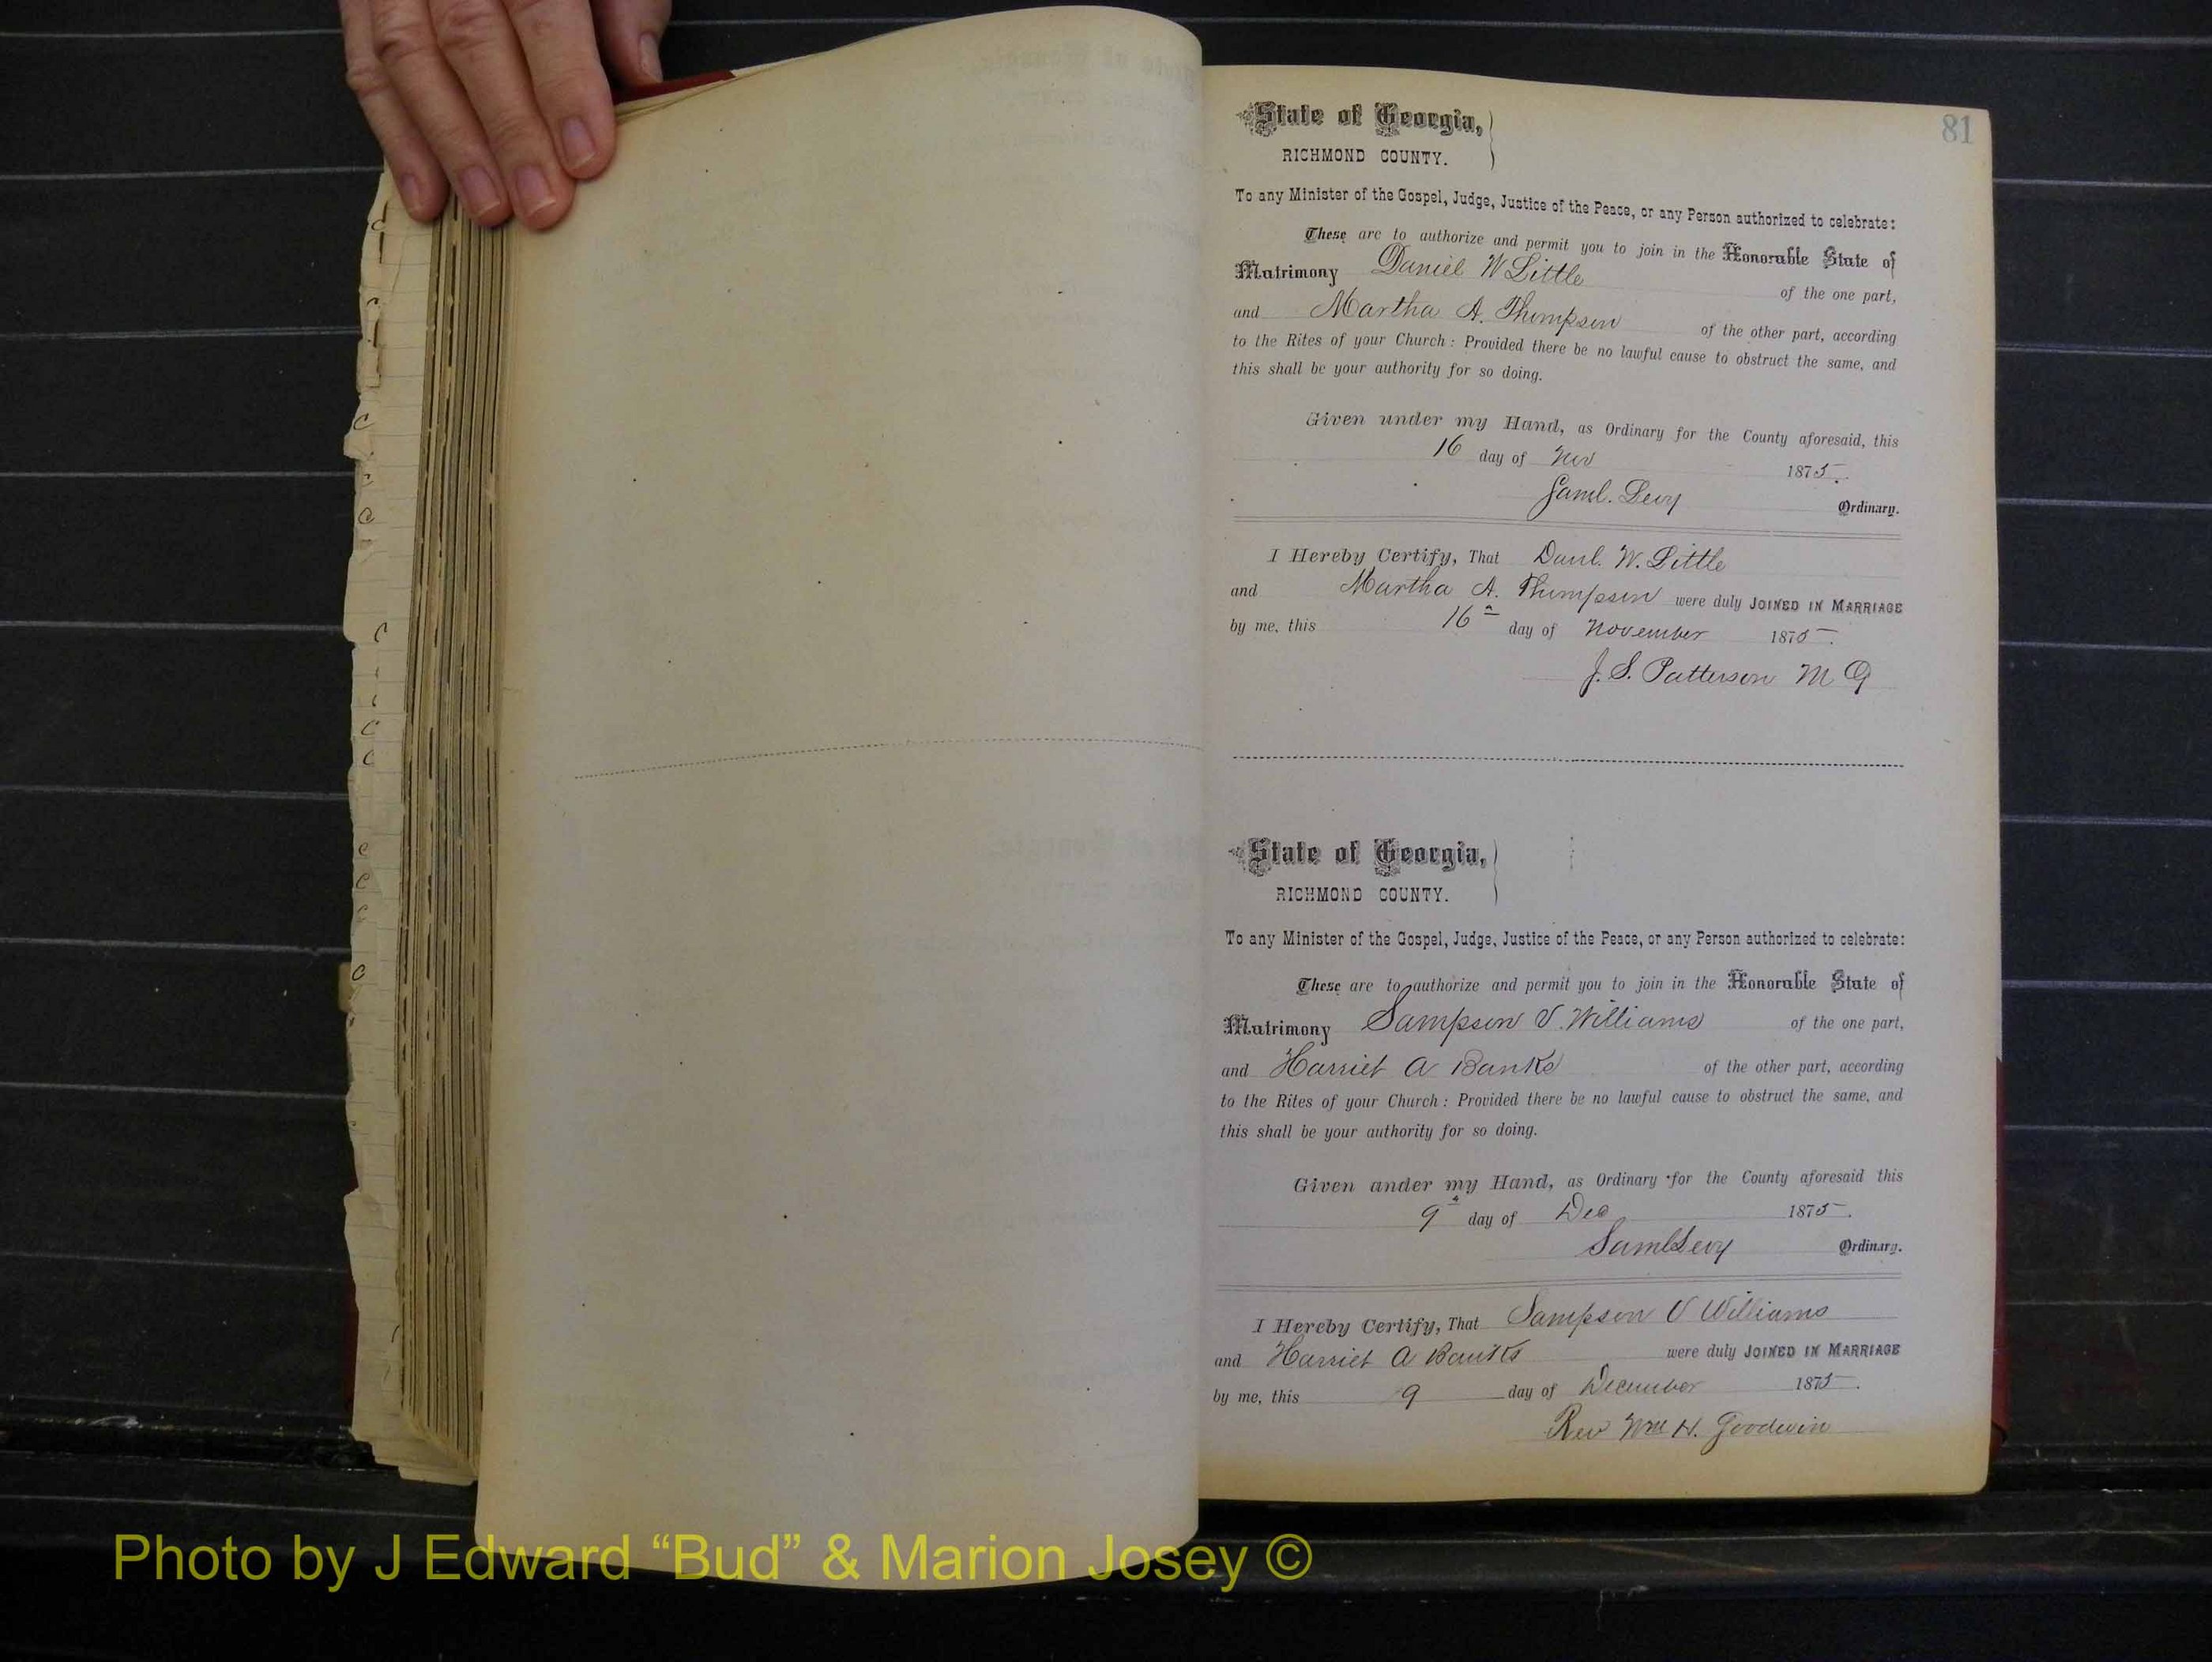 81
State of Georgia,
RICHMOND COUNTY.
To any Minister of the Gospel, Judge, Justice of the Peace, or any Person authorized to celebrate:
These are to authorize and permit you to join in the Honorable State of
Matrimony Daniel W Little of the one part,
and Martha A. Thompson of the other part, according
to the Rites of your Church: Provided there be no lawful cause to obstruct the same, and
this shall be your authority for so doing.
Given under my Hand, as Ordinary for the County aforesaid, this
16 day of Nov 1875.
Saml. Levy Ordinary.
I Hereby Certify, That Danl. W. Little
and Martha A. Thompson were duly JOINED IN MARRIAGE
by me, this 16th day of November 1875.
J. S. Patterson M G
State of Georgia,
RICHMOND COUNTY.
To any Minister of the Gospel, Judge, Justice of the Peace, or any Person authorized to celebrate:
These are to authorize and permit you to join in the Honorable State of
Matrimony Sampson V. Williams of the one part,
and Harriet A Banks of the other part, according
to the Rites of your Church: Provided there be no lawful cause to obstruct the same, and
this shall be your authority for so doing.
Given under my Hand, as Ordinary for the County aforesaid this
9th day of Dec 1875.
Saml Levy Ordinary.
I Hereby Certify, That Sampson V Williams
and Harriet A Banks were duly JOINED IN MARRIAGE
by me, this 9 day of December 1875.
Rev Wm H. Goodwin
Photo by J Edward “Bud” & Marion Josey ©